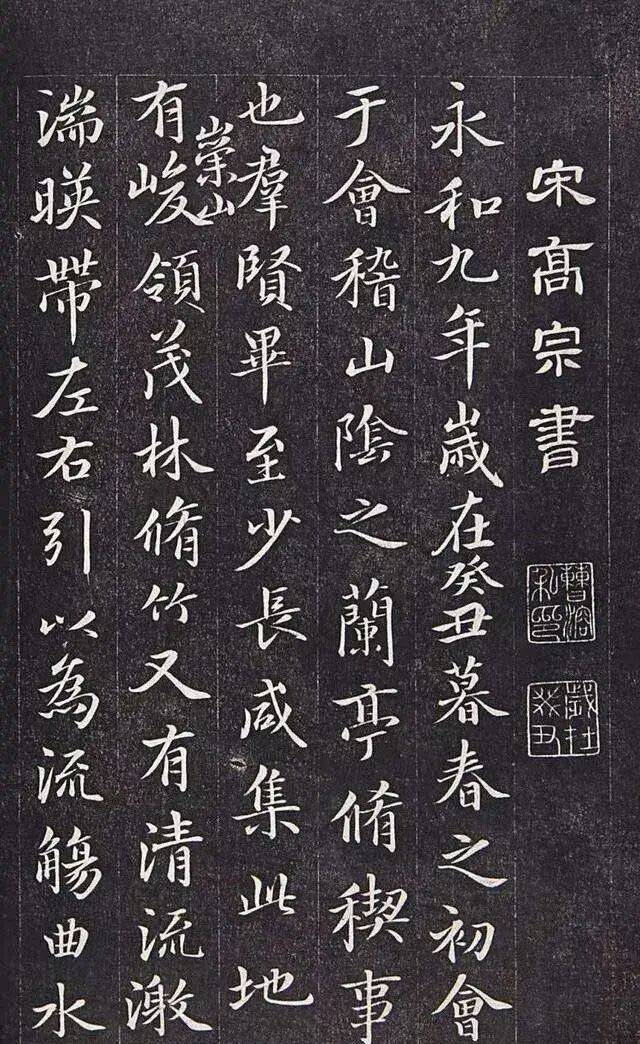 宋髙宗書
曹溶私印
永和九年歲在癸丑暮春之初會
于會稽山陰之蘭亭脩稧事
也羣賢畢至少長咸集此地
有崇山峻領茂林脩竹又有清流激
湍暎帶左右引以為流觴曲水